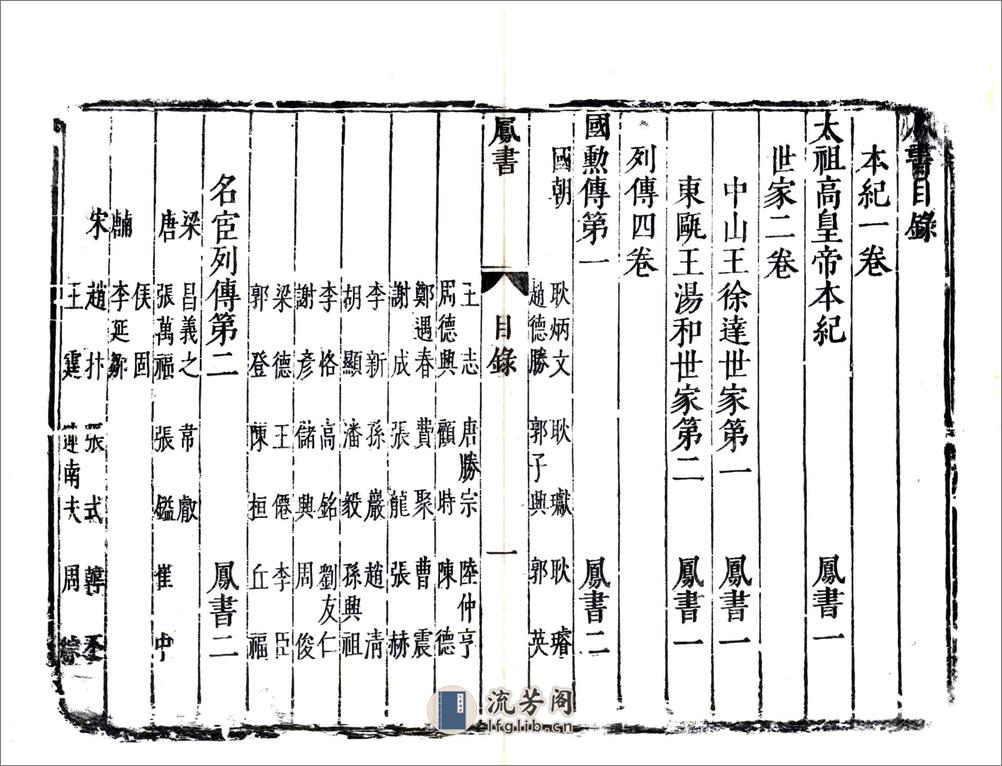 鳳書目錄
本紀一卷
太祖高皇帝本紀 鳳書一
世家二卷
中山王徐達世家第一 鳳書一
東甌王湯和世家第二 鳳書一
列傳四卷
國勲傳第一 鳳書二
國朝
耿炳文 耿瓛 耿璿
趙德勝 郭子興 郭英
鳳書 目錄 一
王志 唐勝宗 陸仲亨
周德興 顧時 陳德
鄭遇春 費聚 曹震
謝成 張龍 張赫
李新 孫嚴 趙清
胡顯 潘毅 孫興祖
李恪 高銘 劉友仁
謝彥 儲興 周俊
梁德 王僊 李臣
郭登 陳桓 丘福
名宦列傳第二 鳳書二
梁 昌義之 常
唐 張萬福 張鎰 崔中
侯固
李延鄒
宋 趙抃 張式 韓丕
王霆 連南夫 周綜
流芳阁
lfglib.cn